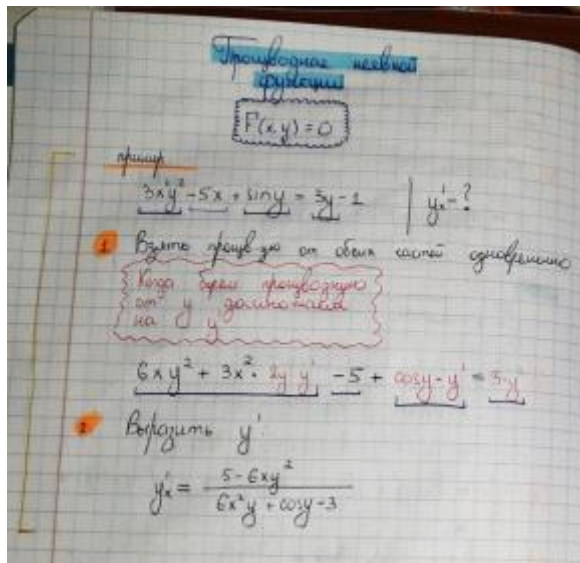 Производная неявной
функции
F(x,y)=0
пример
3x²y² - 5x + siny = 3y - 1 | y'ₓ - ?
1 Взять произв-ую от обеих частей одновременно
Когда берём производную
от y домножаем
на y'
6xy² + 3x²·2y·y' - 5 + cosy·y' = 3·y'
2 Выразить y'
y'ₓ = (5 - 6xy²) / (6x²y + cosy - 3)